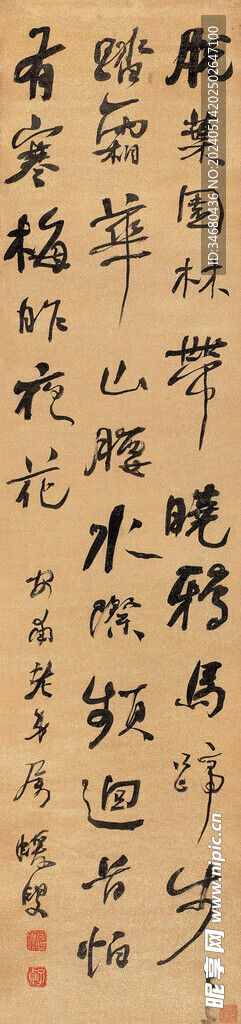 脱葉園林帶曉鴉馬蹄步々
踏霜華山腰水際頻迴首怕
有寒梅昨夜花
南老屬蝯叟
ID:34680436 NO:20240514202502647100
昵享网 www.nipic.cn